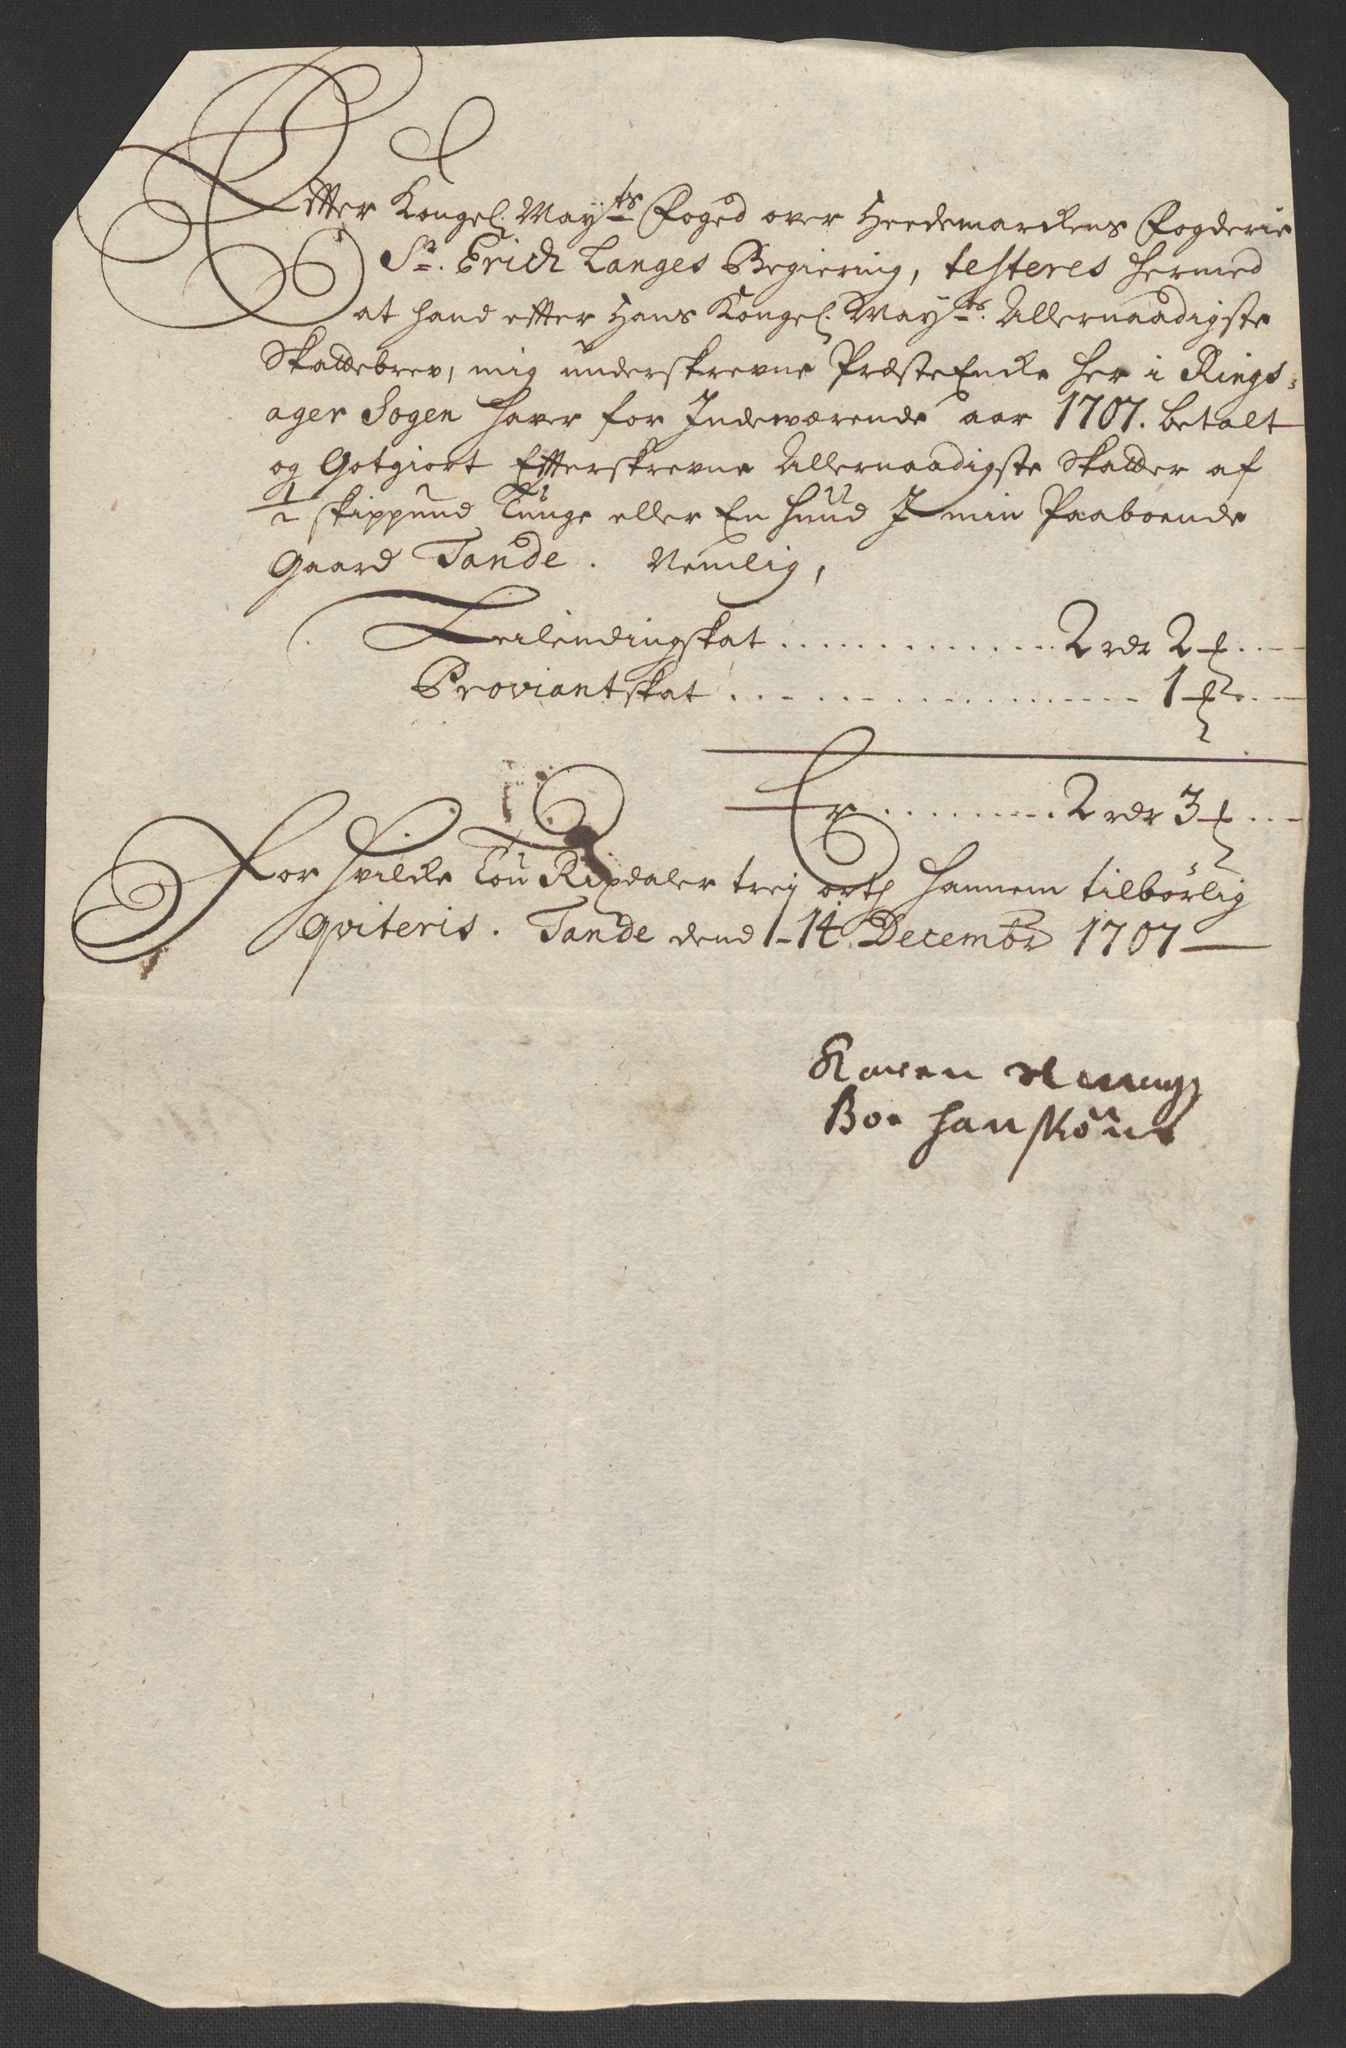 Efter Kongel. Mayts Foged over Hedemarckens Fogderie
Sr. Erich Langes Begiering, testeres hermed
at hand efter Hans Kongel. Mayts. Allernaadigste
Skattebrev, mig underskrevne Præste Encke her i Rings-
ager Sogen haver for Indeværende aar 1707. betalt
og Gotgiort Efterskrevne Allernaadigste Skatter af
1/2 skippund Tunge eller En Huud I min Paaboende
Gaard Tande. Nemlig,
Leilendingskat .............. 2 rdr 2 ₰ ....
Proviantskat .................. 1 ₰ ....
Er ......... 2 rdr 3 ₰ ....
For hvilcke Tou Rixdaler trej ort hannem tilbørlig
qviteris. Tande dend 14. Decembr 1707
Karen